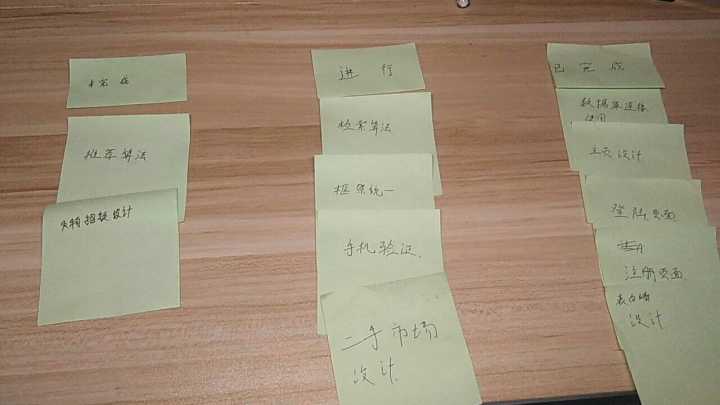 未完成
推荐算法
失物招领设计
进行
检索算法
框架统一
手机验证
二手市场
设计
已完成
数据库连接
使用
主页设计
登陆页面
注册页面
表白墙
设计